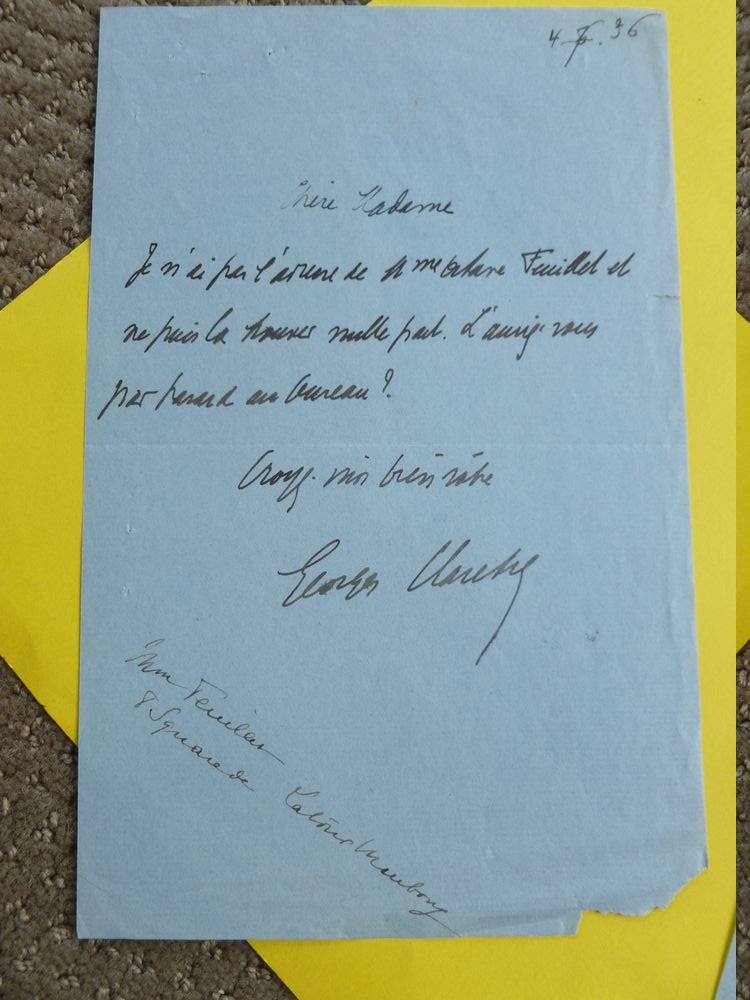 4. 5. 36
Chère Madame
Je n'ai pas l'adresse de Mme Octave Feuillet et
ne puis la trouver nulle part. L'auriez-vous
par hasard au bureau ?
Croyez-moi bien vôtre
Georges Claretie
Mme Feuillet
8 Square de Latour Maubourg